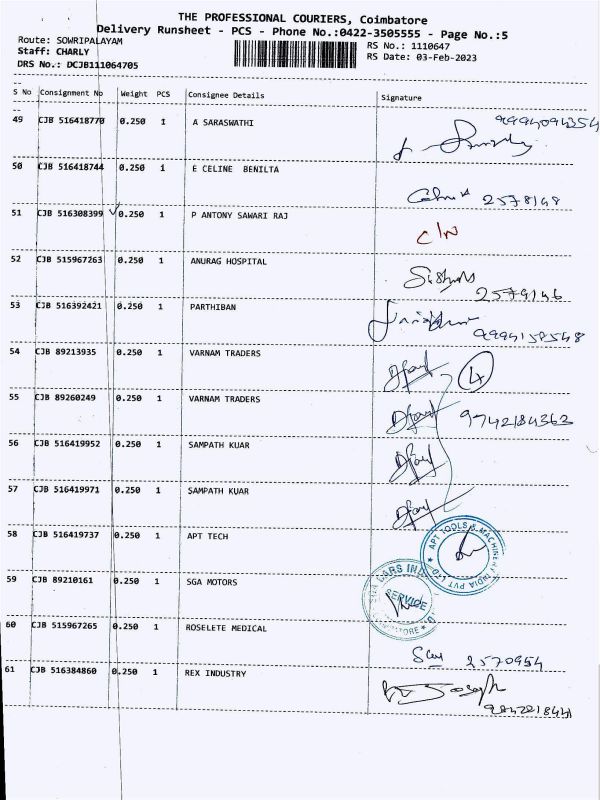 THE PROFESSIONAL COURIERS, Coimbatore
Delivery Runsheet - PCS - Phone No.:0422-3505555 - Page No.:5
Route: SOWRIPALAYAM
Staff: CHARLY
DRS No.: DCJB111064705
RS No.: 1110647
RS Date: 03-Feb-2023
S No Consignment No Weight PCS Consignee Details Signature
49 CJB 516418770 0.250 1 A SARASWATHI 9994094354
50 CJB 516418744 0.250 1 E CELINE BENILTA 2578148
51 CJB 516308399 0.250 1 P ANTONY SAWARI RAJ C/N
52 CJB 515967263 0.250 1 ANURAG HOSPITAL 2579146
53 CJB 516392421 0.250 1 PARTHIBAN 9994158548
54 CJB 89213935 0.250 1 VARNAM TRADERS 4
55 CJB 89260249 0.250 1 VARNAM TRADERS 9742184362
56 CJB 516419952 0.250 1 SAMPATH KUAR
57 CJB 516419971 0.250 1 SAMPATH KUAR
58 CJB 516419737 0.250 1 APT TECH APT TOOLS & MACHINERY INDIA PVT LTD
59 CJB 89210161 0.250 1 SGA MOTORS CARS SERVICE
60 CJB 515967265 0.250 1 ROSELETE MEDICAL 2570954
61 CJB 516384860 0.250 1 REX INDUSTRY Joseph